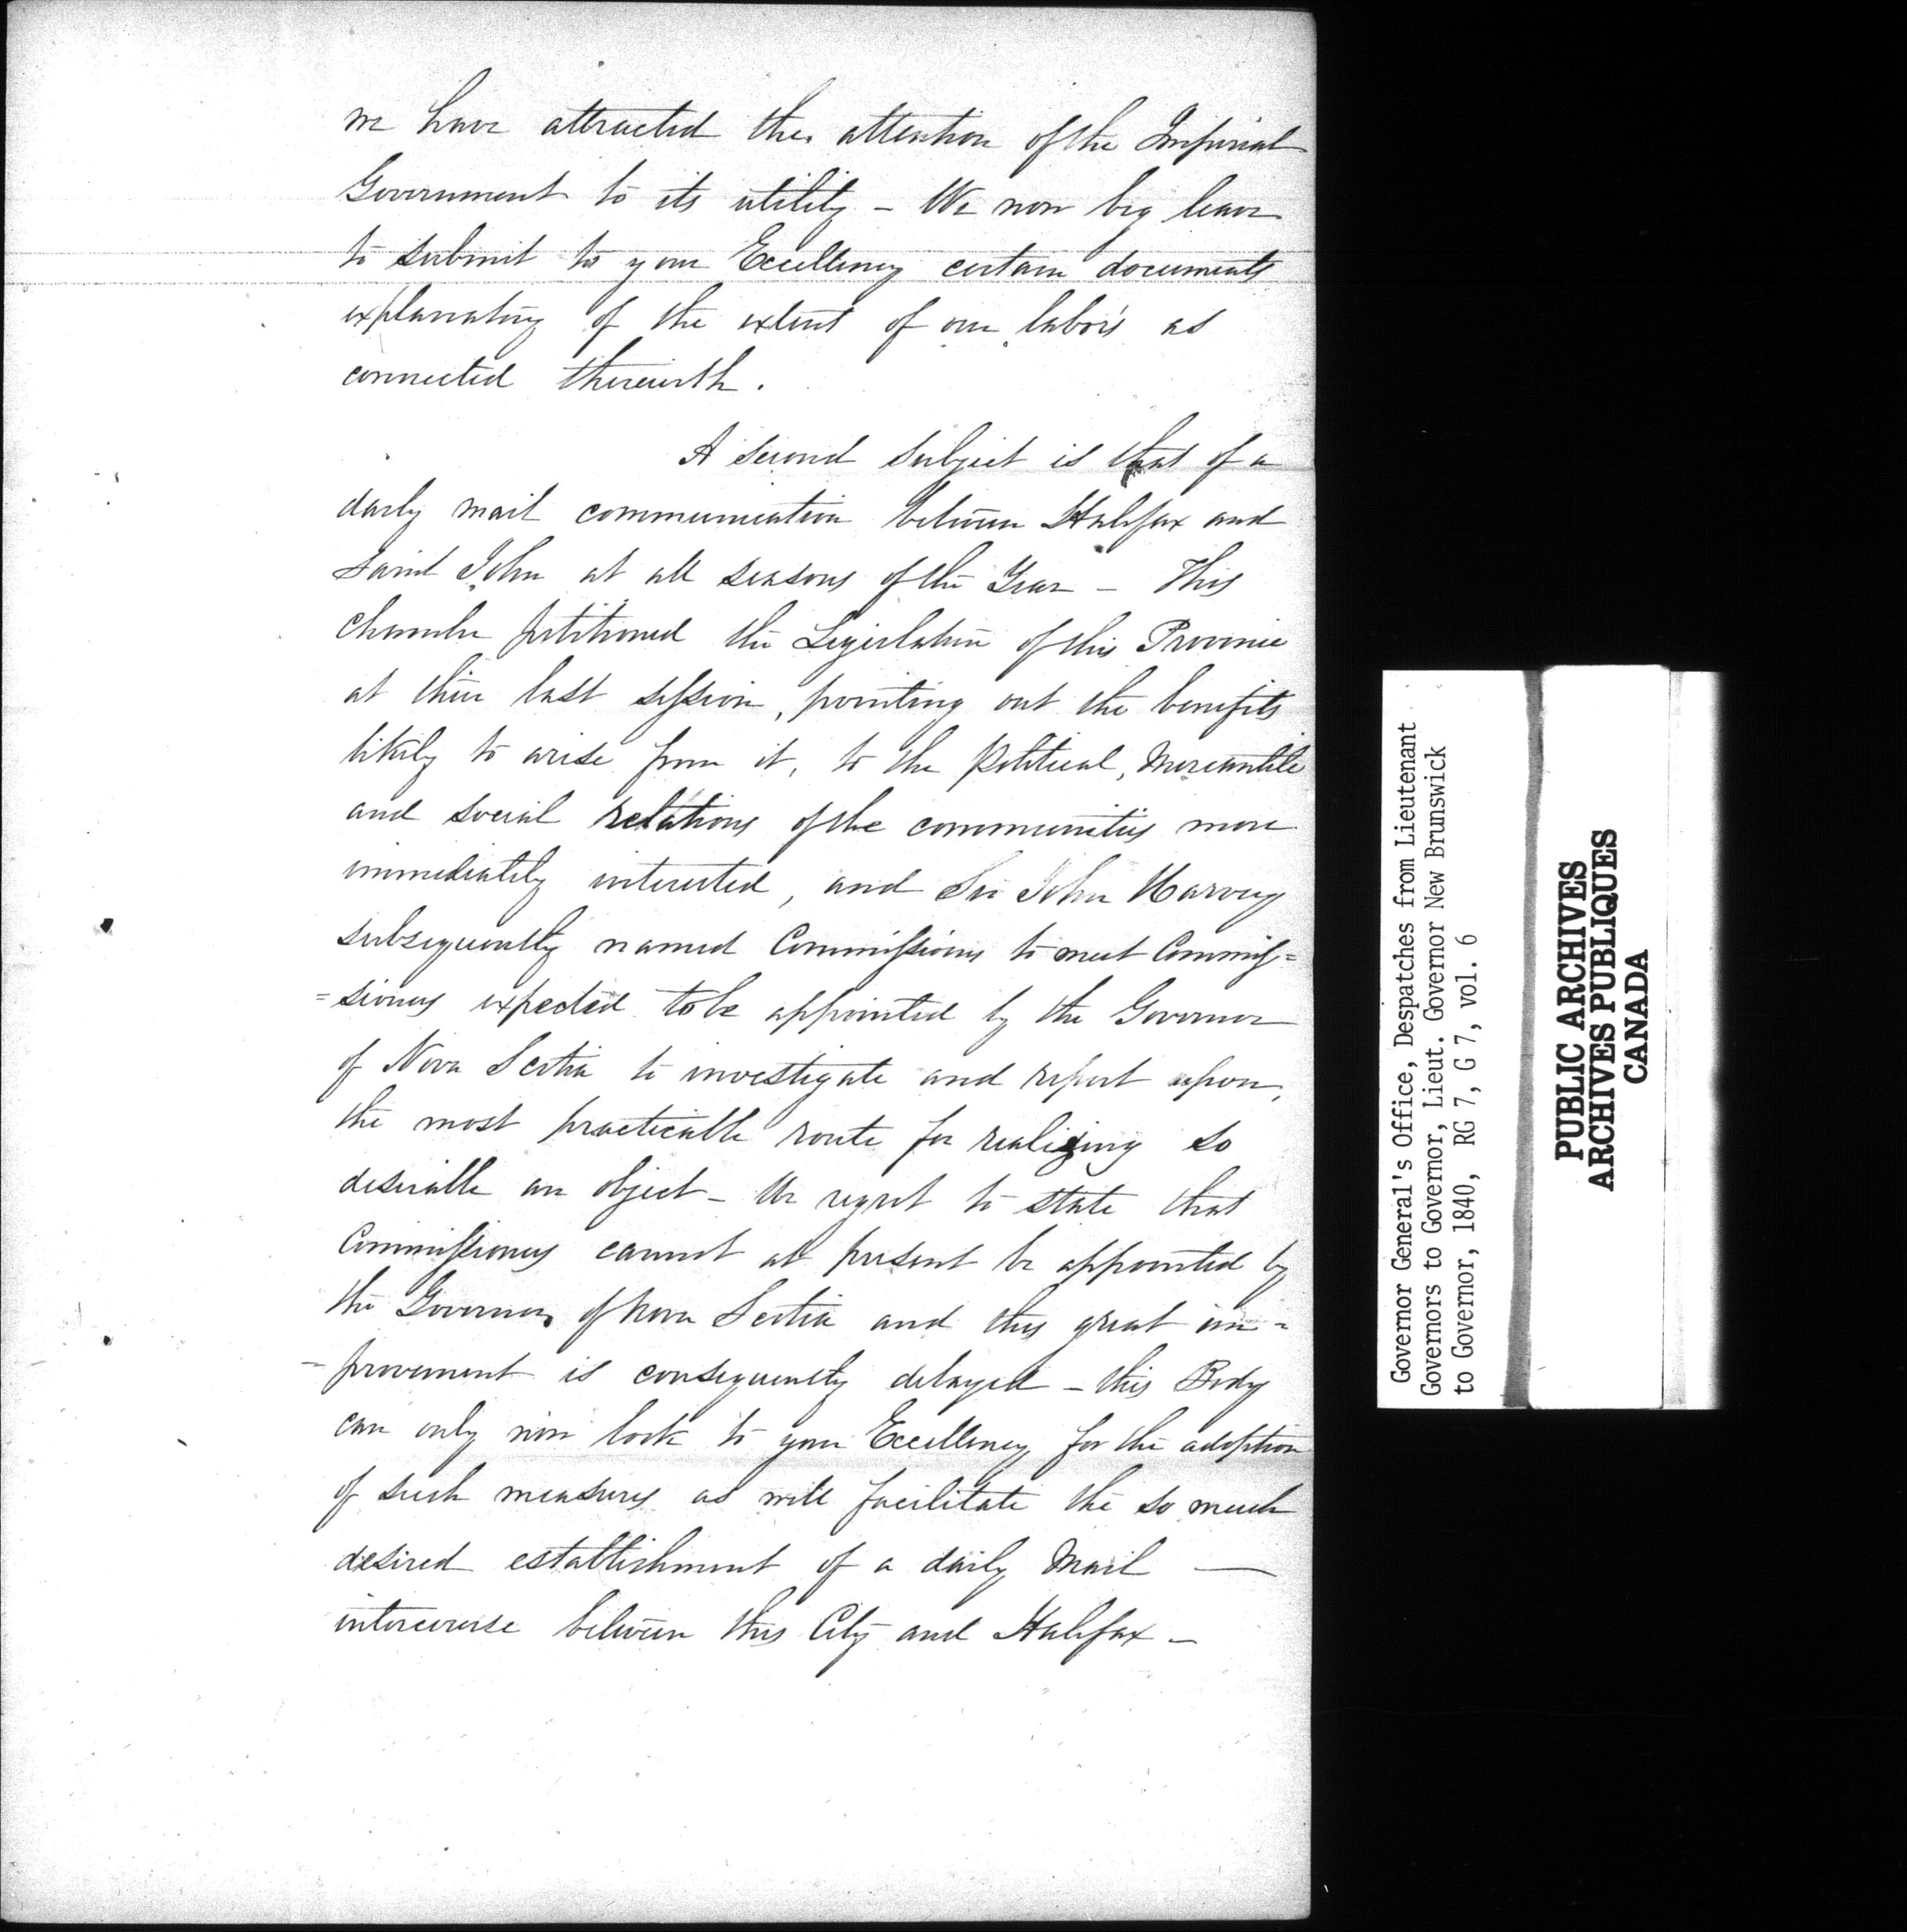 we have attracted the attention of the Imperial
Government to its utility - We now beg leave
to submit to your Excellency certain documents
explanatory of the extent of our labors as
connected therewith.
A second subject is that of a
daily mail communication between Halifax and
Saint John at all seasons of the Year - This
Chamber petitioned the Legislature of this Province
at their last session, pointing out the benefits
likely to arise from it, to the political, Mercantile
and social relations of the communities more
immediately interested, and Sir John Harvey
subsequently named Commissioners to meet Commis=
=sioners expected to be appointed by the Governor
of Nova Scotia to investigate and report upon,
the most practicable route for realizing so
desirable an object - We regret to state that
Commissioners cannot at present be appointed by
the Governor of Nova Scotia and this great im=
-provement is consequently delayed - this Body
can only now look to your Excellency for the adoption
of such measures as will facilitate the so much
desired establishment of a daily Mail —
intercourse between this City and Halifax -
Governor General's Office, Despatches from Lieutenant
Governors to Governor, Lieut. Governor New Brunswick
to Governor, 1840, RG 7, G 7, vol. 6
PUBLIC ARCHIVES
ARCHIVES PUBLIQUES
CANADA